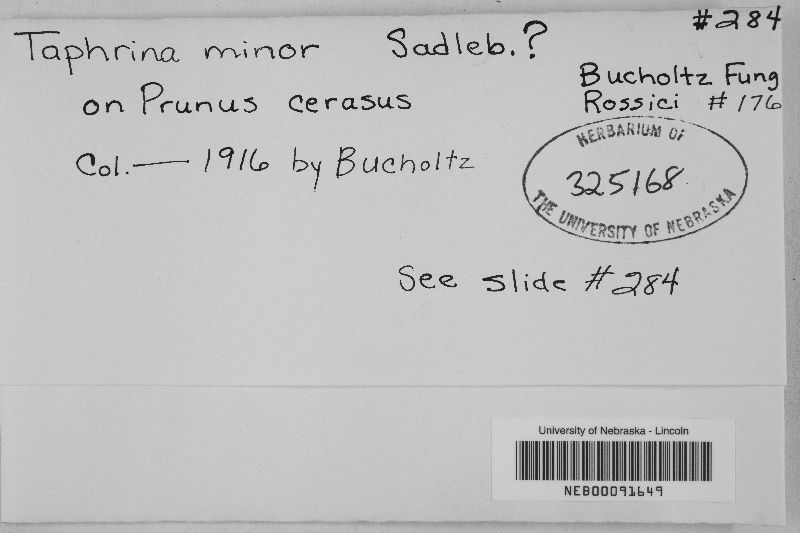 #284
Taphrina minor Sadleb.?
on Prunus cerasus
Bucholtz Fung
Rossici #176
Col. — 1916 by Bucholtz
HERBARIUM OF
325168
THE UNIVERSITY OF NEBRASKA
See slide #284
University of Nebraska - Lincoln
NEB00091649